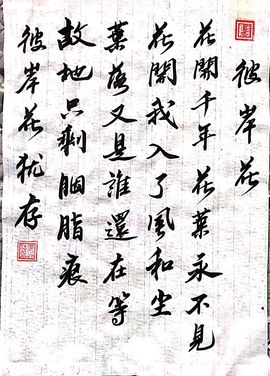 彼岸花
花開千年花葉永不見
花開我入了風和尘
葉落又是誰還在等
故地只剩胭脂痕
彼岸花犹存